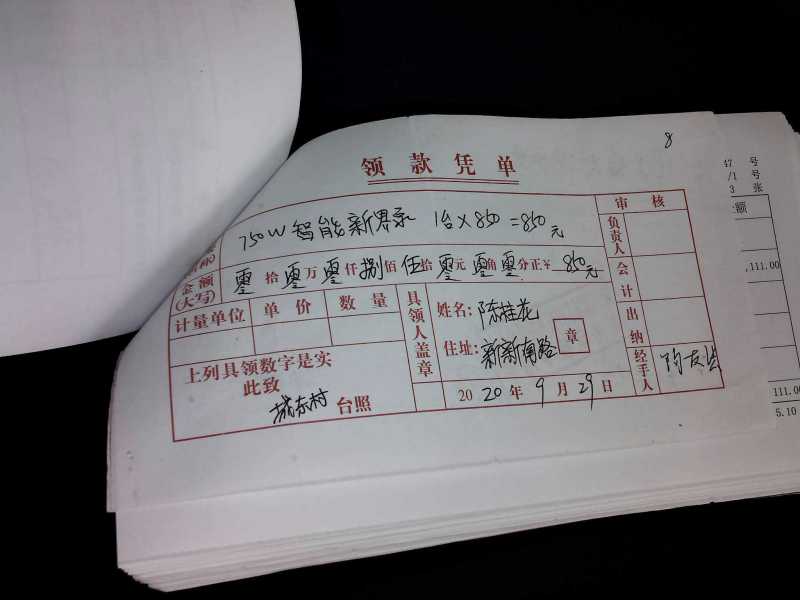 8
领款凭单
750W 智能新界泵 1台×850=850元
金额(大写) 零拾零万零仟捌佰伍拾零元零角零分正¥ 850元
计量单位 单价 数量
上列具领数字是实
此致
城东村 台照
具领人盖章
姓名: 陈桂花
住址: 新新南路 章
2020年9月29日
审核
负责人
会计
出纳
经手人
47 号
/1 号
3 张
额
,111.00
111.00
5.10